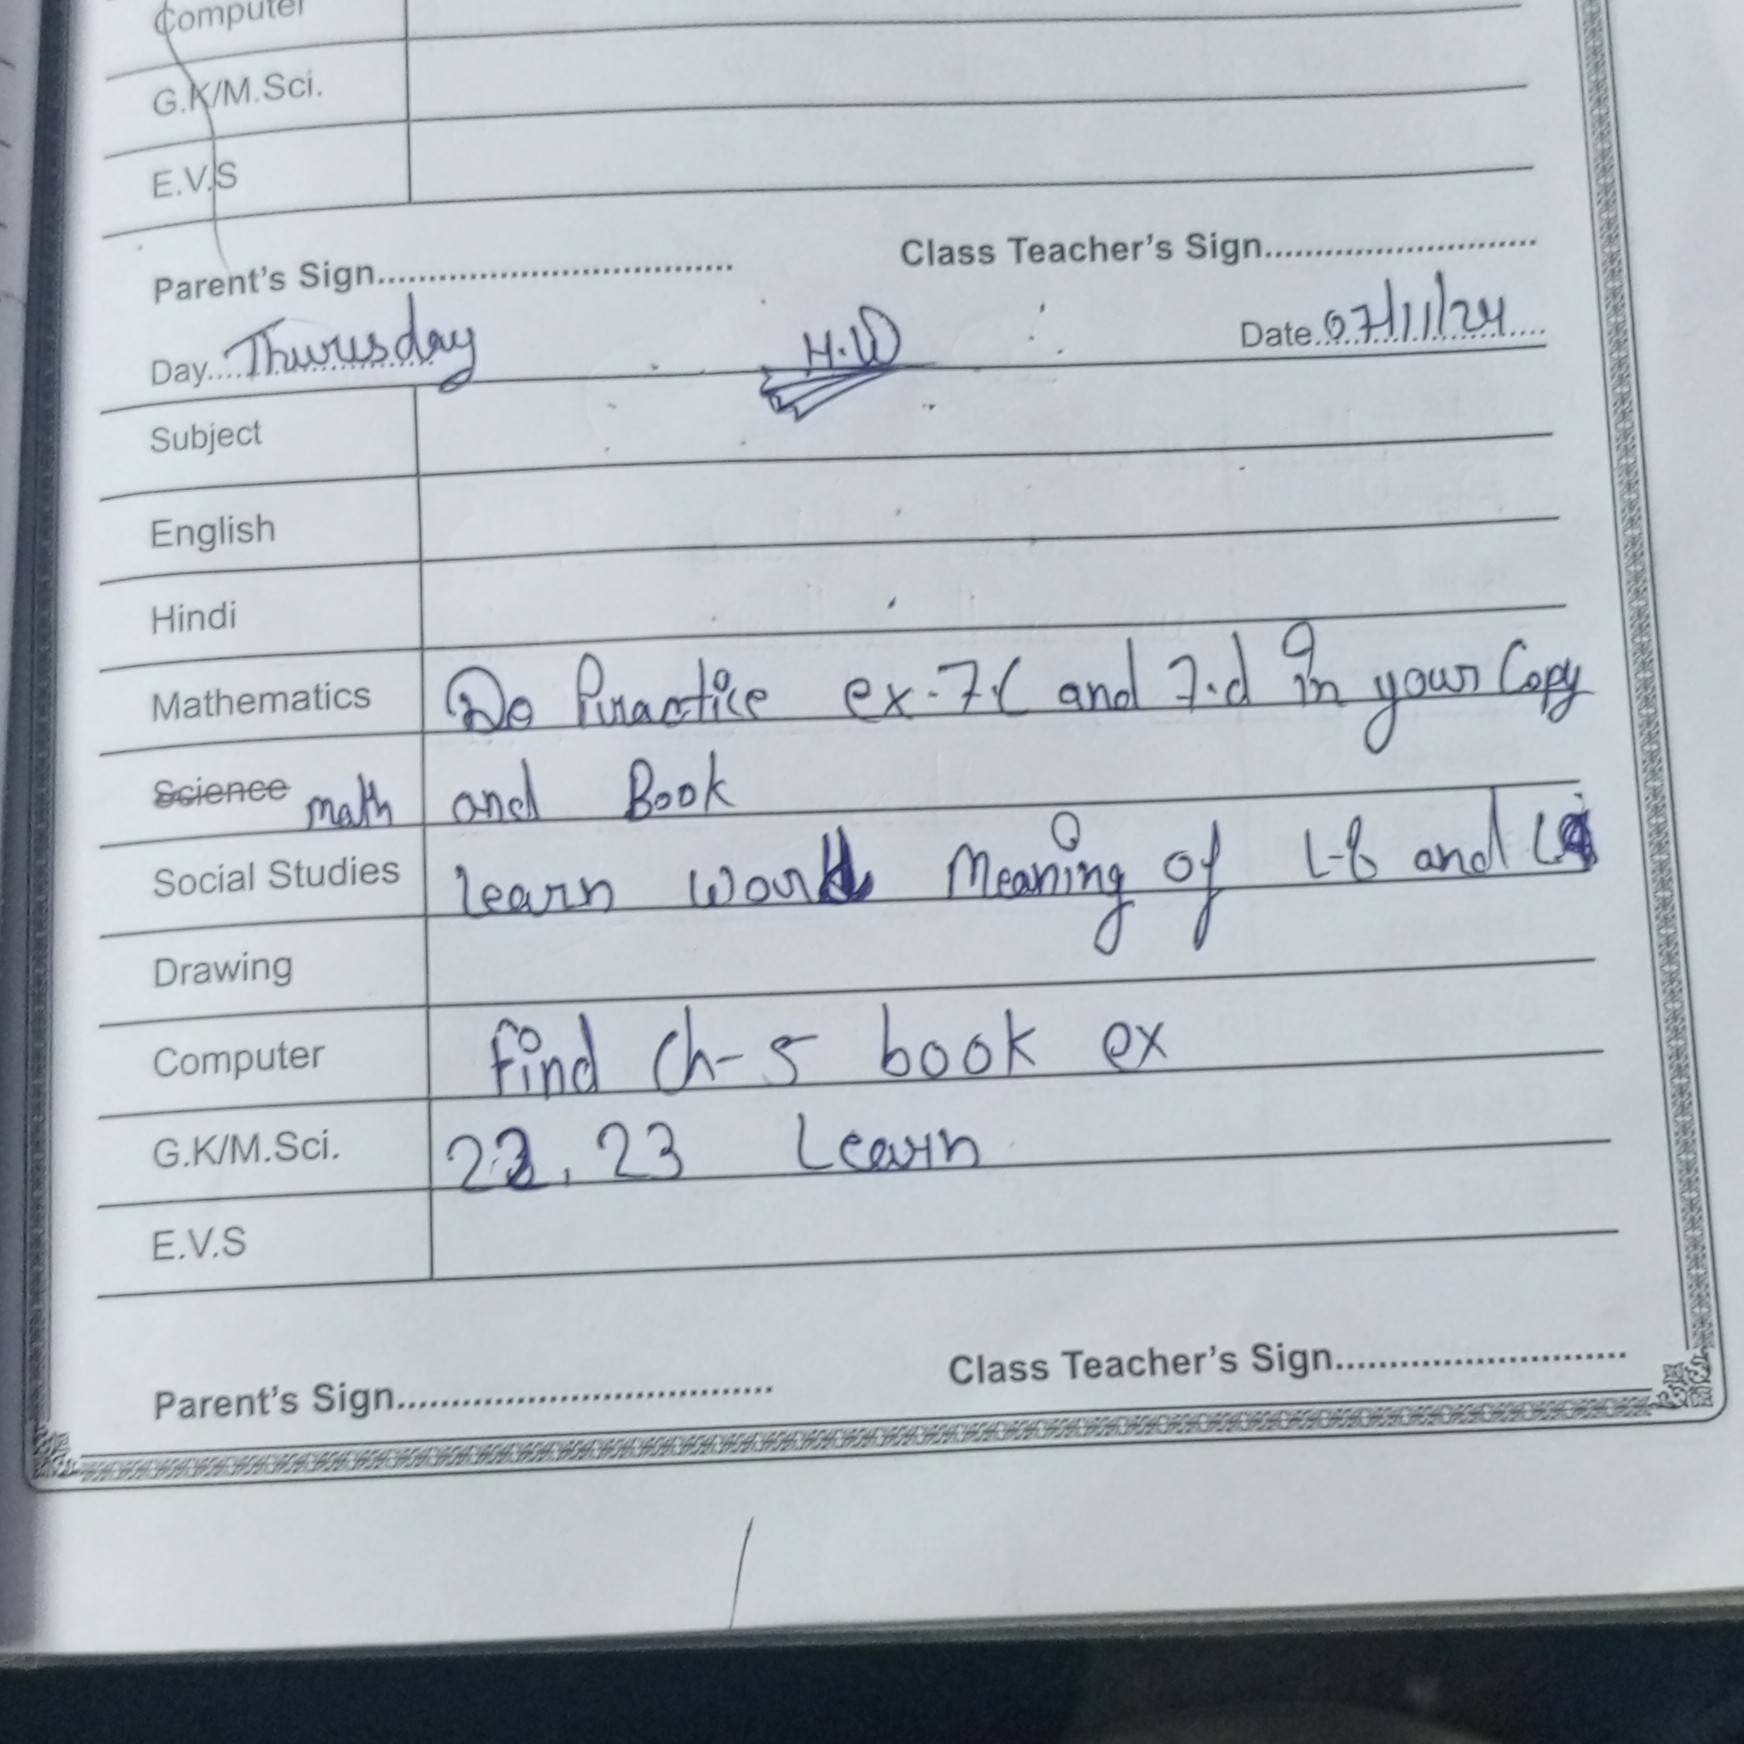 Computer
G.K/M.Sci.
E.V.S
Parent's Sign.................................. Class Teacher's Sign...........................
Day....Thursday H.W Date..07/11/24....
Subject
English
Hindi
Mathematics Do Practice ex-7.C and 7.d in your Copy
Science math and Book
Social Studies learn Meaning of L-6 and
Drawing
Computer find Ch-5 book ex
G.K/M.Sci. 22, 23 Learn
E.V.S
Parent's Sign.................................. Class Teacher's Sign...........................